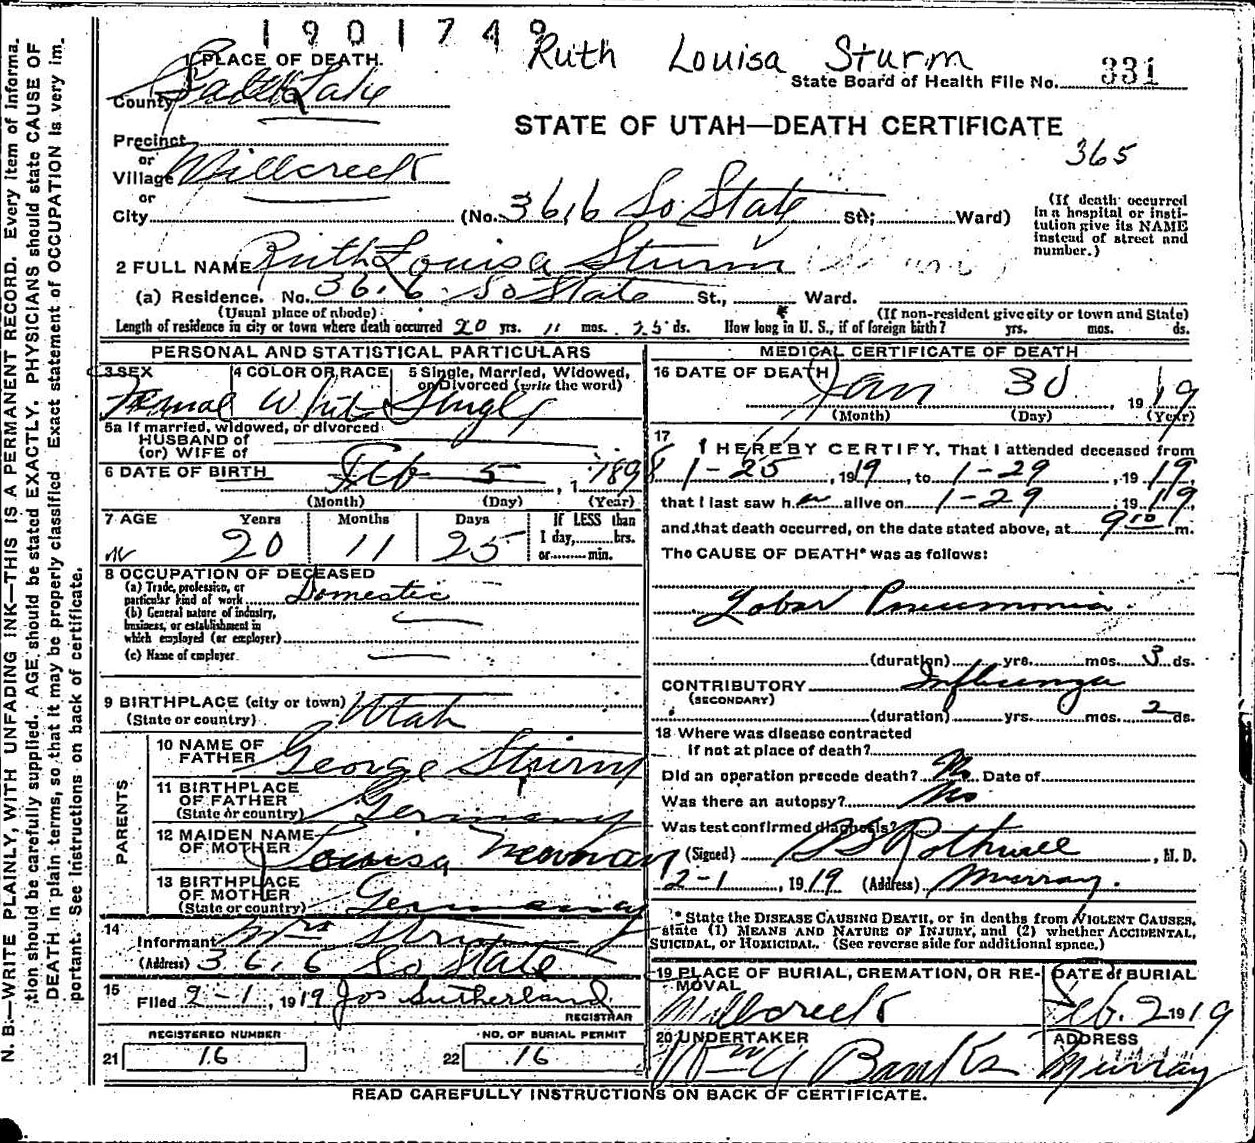 1901749
Ruth Louisa Sturm
1 PLACE OF DEATH.
State Board of Health File No. 331
County Salt Lake
STATE OF UTAH—DEATH CERTIFICATE
365
Precinct
or
Village Millcreek
or
City (No. 3616 So State St; Ward)
(If death occurred in a hospital or institution give its NAME instead of street and number.)
2 FULL NAME Ruth Louisa Sturm
(a) Residence. No. 3616 So State St., Ward.
(Usual place of abode) (If non-resident give city or town and State)
Length of residence in city or town where death occurred 20 yrs. 11 mos. 25 ds. How long in U. S., if of foreign birth? yrs. mos. ds.
PERSONAL AND STATISTICAL PARTICULARS
3 SEX 4 COLOR OR RACE 5 Single, Married, Widowed,
or Divorced (write the word)
Femal White Single
5a If married, widowed, or divorced
HUSBAND of
(or) WIFE of
6 DATE OF BIRTH Feb 5, 1898
(Month) (Day) (Year)
7 AGE Years Months Days If LESS than
1 day, hrs.
or min.
20 11 25
8 OCCUPATION OF DECEASED
(a) Trade, profession, or
particular kind of work Domestic
(b) General nature of industry,
business, or establishment in
which employed (or employer)
(c) Name of employer
9 BIRTHPLACE (city or town)
(State or country) Utah
PARENTS
10 NAME OF
FATHER George Sturm
11 BIRTHPLACE
OF FATHER
(State or country) Germany
12 MAIDEN NAME
OF MOTHER Louisa Newman
13 BIRTHPLACE
OF MOTHER
(State or country) Germany
14
Informant Mrs Sturm
(Address) 3616 So State
15
Filed 2-1, 1919 Jos Sutherland
REGISTRAR
REGISTERED NUMBER NO. OF BURIAL PERMIT
21 16 22 16
MEDICAL CERTIFICATE OF DEATH
16 DATE OF DEATH Jan 30, 1919
(Month) (Day) (Year)
17
I HEREBY CERTIFY, That I attended deceased from
1-25, 1919, to 1-29, 1919,
that I last saw her alive on 1-29 1919,
and that death occurred, on the date stated above, at 9 10 m.
The CAUSE OF DEATH* was as follows:
Lobar Pneumonia
(duration) yrs. mos. 3 ds.
CONTRIBUTORY Influenza
(SECONDARY)
(duration) yrs. mos. 2 ds.
18 Where was disease contracted
if not at place of death?
Did an operation precede death? No Date of
Was there an autopsy? No
Was test confirmed diagnosis?
(Signed) Rothwell, M. D.
2-1, 1919 (Address) Murray.
* State the DISEASE CAUSING DEATH, or in deaths from VIOLENT CAUSES,
state (1) MEANS AND NATURE OF INJURY, and (2) whether ACCIDENTAL,
SUICIDAL, or HOMICIDAL. (See reverse side for additional space.)
19 PLACE OF BURIAL, CREMATION, OR RE-
MOVAL
Millcreek
DATE of BURIAL
Feb. 2 1919
20 UNDERTAKER
Banks
ADDRESS
Murray
READ CAREFULLY INSTRUCTIONS ON BACK OF CERTIFICATE.
N. B.—WRITE PLAINLY, WITH UNFADING INK—THIS IS A PERMANENT RECORD. Every item of informa-
tion should be carefully supplied. AGE should be stated EXACTLY. PHYSICIANS should state CAUSE OF
DEATH in plain terms, so that it may be properly classified. Exact statement of OCCUPATION is very im-
portant. See instructions on back of certificate.